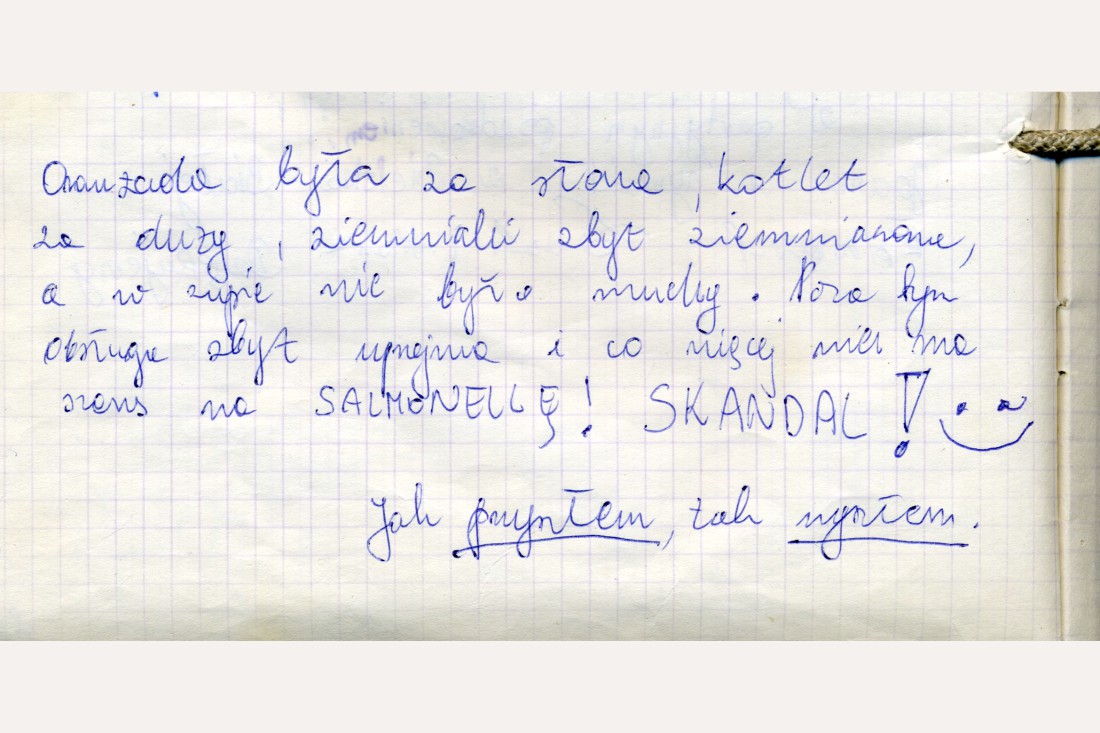 Oranżada była za słona, kotlet
za duży, ziemniaki zbyt ziemniaczane,
a w zupie nie było muchy. Poza tym
obsługa zbyt uprzejma i co więcej nie ma
szans na SALMONELLĘ! SKANDAL!
Jak przyszłem, tak wyszłem.